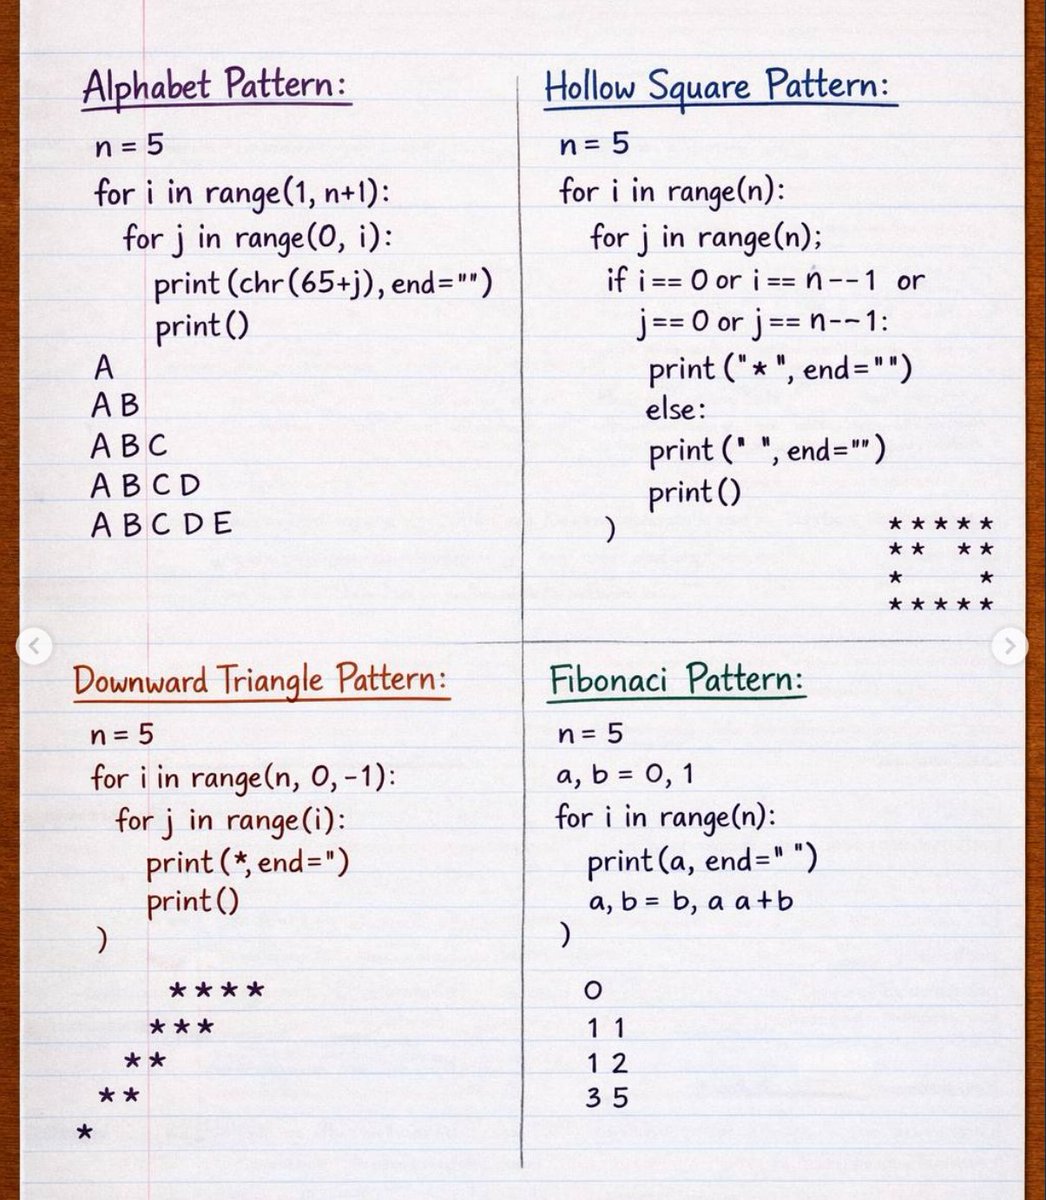 Alphabet Pattern:
n = 5
for i in range(1, n+1):
for j in range(0, i):
print (chr (65+j), end="")
print()
A
A B
A B C
A B C D
A B C D E
Hollow Square Pattern:
n = 5
for i in range(n):
for j in range(n);
if i == 0 or i == n--1 or
j == 0 or j == n--1:
print ("* ", end="")
else:
print (" ", end="")
print()
)
* * * * *
* *   * *
*       *
* * * * *
Downward Triangle Pattern:
n = 5
for i in range(n, 0, -1):
for j in range(i):
print (*, end=")
print()
)
* * * *
* * *
* *
* *
*
Fibonaci Pattern:
n = 5
a, b = 0, 1
for i in range(n):
print(a, end=" ")
a, b = b, a a+b
)
0
1 1
1 2
3 5